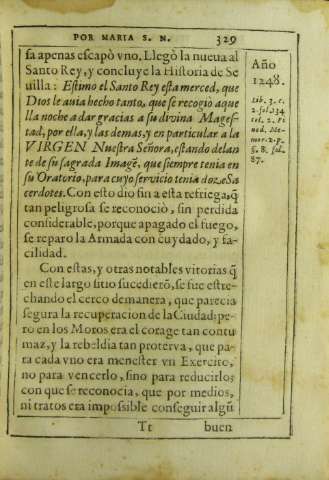 POR MARIA S. N. 329
sa apenas escapò vno. Llegò la nueua al
Santo Rey, y concluye la Historia de Se
uilla: Estimo el Santo Rey esta merced, que
Dios le auia hecho tanto, que se recogio aque
lla noche a dar gracias a su diuina Mages-
tad, por ella, y las demas, y en particular a la
VIRGEN Nuestra Señora, estando delan
te de su sagrada Imagẽ, que siempre tenia en
su Oratorio, para cuyo seruicio tenia doze Sa
cerdotes. Con esto dio fin a esta refriega, q̃
tan peligrosa se reconociò, sin perdida
considerable, porque apagado el fuego,
se reparo la Armada con cuydado, y fa-
cilidad.
Con estas, y otras notables vitorias q̃
en este largo sitio sucedierõ, se fue estre-
chando el cerco de manera, que parecia
segura la recuperacion de la Ciudad: pe-
ro en los Moros era el corage tan contu
maz, y la rebeldia tan proterva, que pa-
ra cada vno era menester vn Exercito,
no para vencerlo, sino para reducirlo;
con que se reconocia, que por medios,
ni tratos era impossible conseguir algũ
Tt buen
Año
1248.
Lib. 3. c.
2. fol. 134
col. 2. Pi
ned. Me-
mor. 2. p.
§. 8. fol.
87.